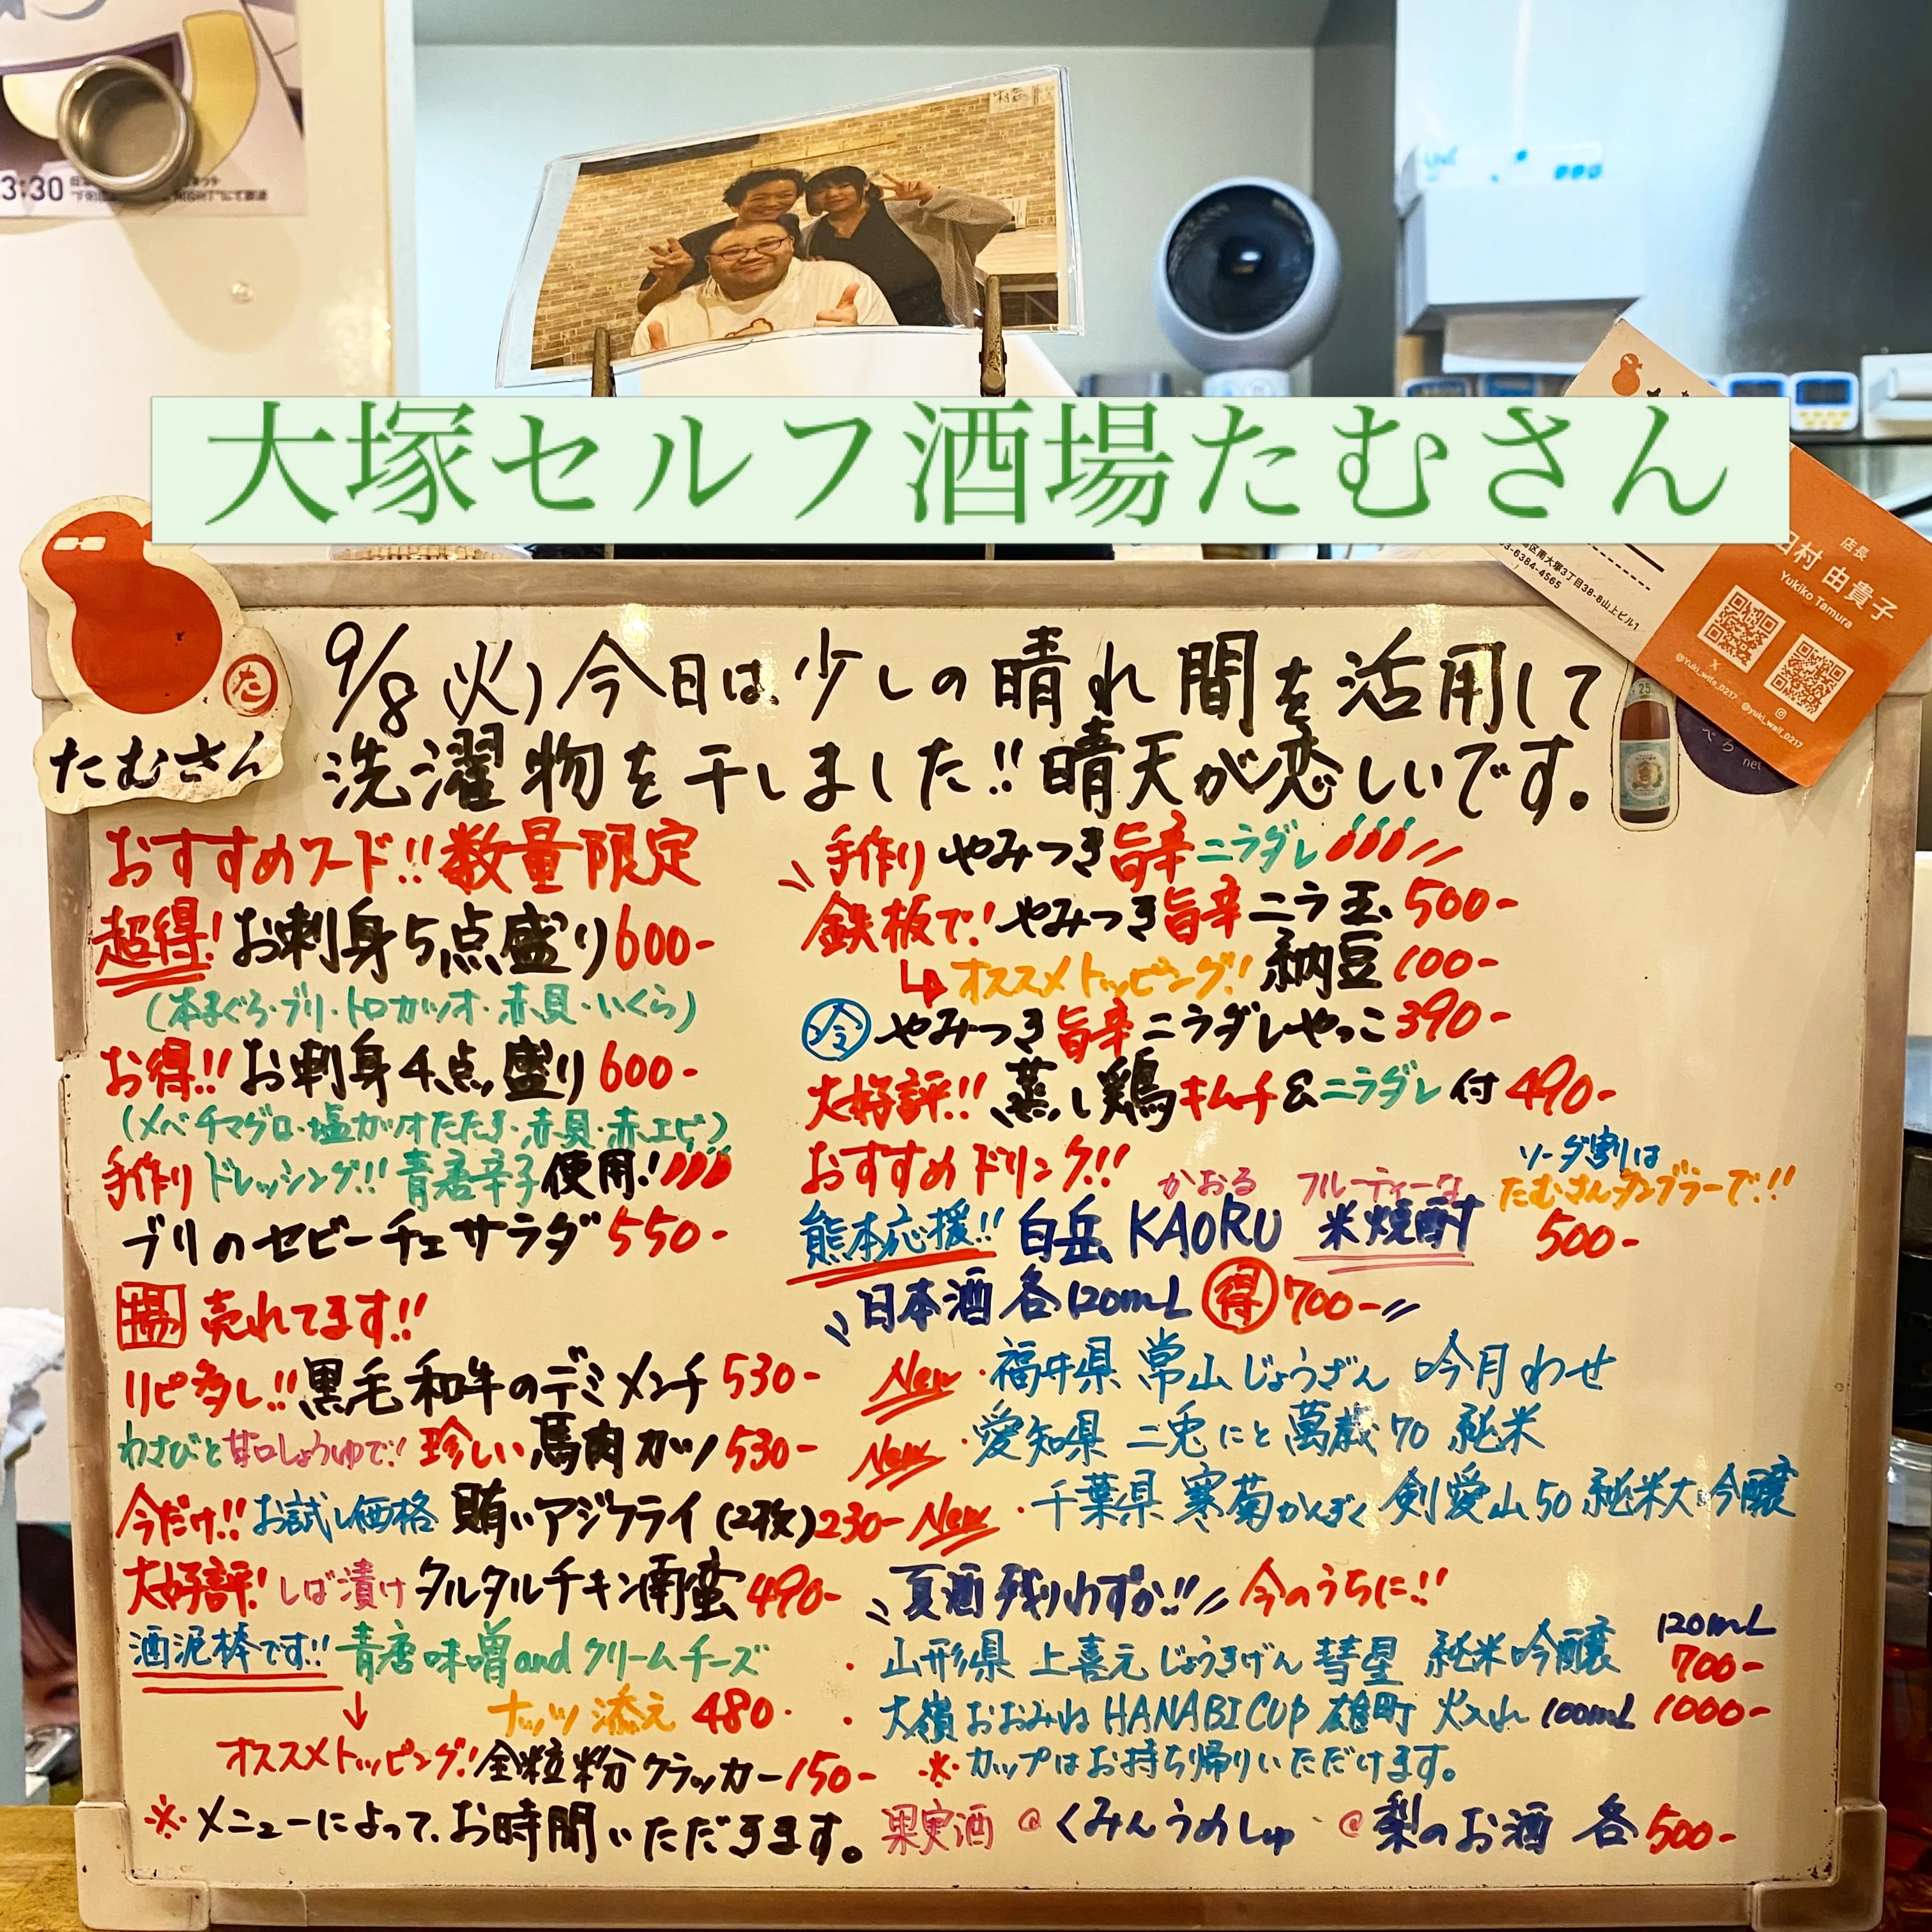 3:30
大塚セルフ酒場たむさん
店長
田村 由貴子
Yukiko Tamura
区南大塚3丁目38-8山上ビル1
3-6384-4565
X
@yuki_wife_0217
@yuki_waif_0217
25
た
たむさん
9/8(火)今日は少しの晴れ間を活用して
洗濯物を干しました!!晴天が恋しいです。
おすすめフード!!数量限定
超得!お刺身5点盛り600-
(本まぐろ・ブリ・トロカツオ・赤貝・いくら)
お得!!お刺身4点盛り600-
(メバチマグロ・塩カツオたたき・赤貝・赤エビ)
手作りドレッシング!!青唐辛子使用!
ブリのセビーチェサラダ550-
揚 売れてます!!
リピ多し!!黒毛和牛のデミメンチ530-
わさびと甘口しょうゆで!珍しい馬肉カツ530-
今だけ!!お試し価格 賄いアジフライ(2枚)230-
大好評!しば漬けタルタルチキン南蛮490-
酒泥棒です!!青唐味噌andクリームチーズ
ナッツ添え 480-
オススメトッピング!全粒粉クラッカー150-
※メニューによって、お時間いただきます。
手作りやみつき旨辛ニラダレ
鉄板で!やみつき旨辛ニラ玉500-
オススメトッピング!納豆100-
冷 やみつき旨辛ニラダレやっこ390-
大好評!!蒸し鶏キムチ&ニラダレ付490-
おすすめドリンク!!
かおる フルーティーな
ソーダ割は
たむさんタンブラーで!!
熊本応援!!白岳KAORU 米焼酎 500-
日本酒各120mL 得700-
New・福井県 常山じょうざん 吟月わせ
New・愛知県 二兎にと萬歳70 純米
New・千葉県 寒菊かんぎく 剣愛山50純米大吟醸
夏酒残りわずか!!今のうちに!!
120mL
・山形県 上喜元じょうきげん 彗星 純米吟醸 700-
・大嶺おおみねHANABI CUP 雄町 火入れ100mL 1000-
※カップはお持ち帰りいただけます。
果実酒 @くみんうめしゅ @梨のお酒 各500-